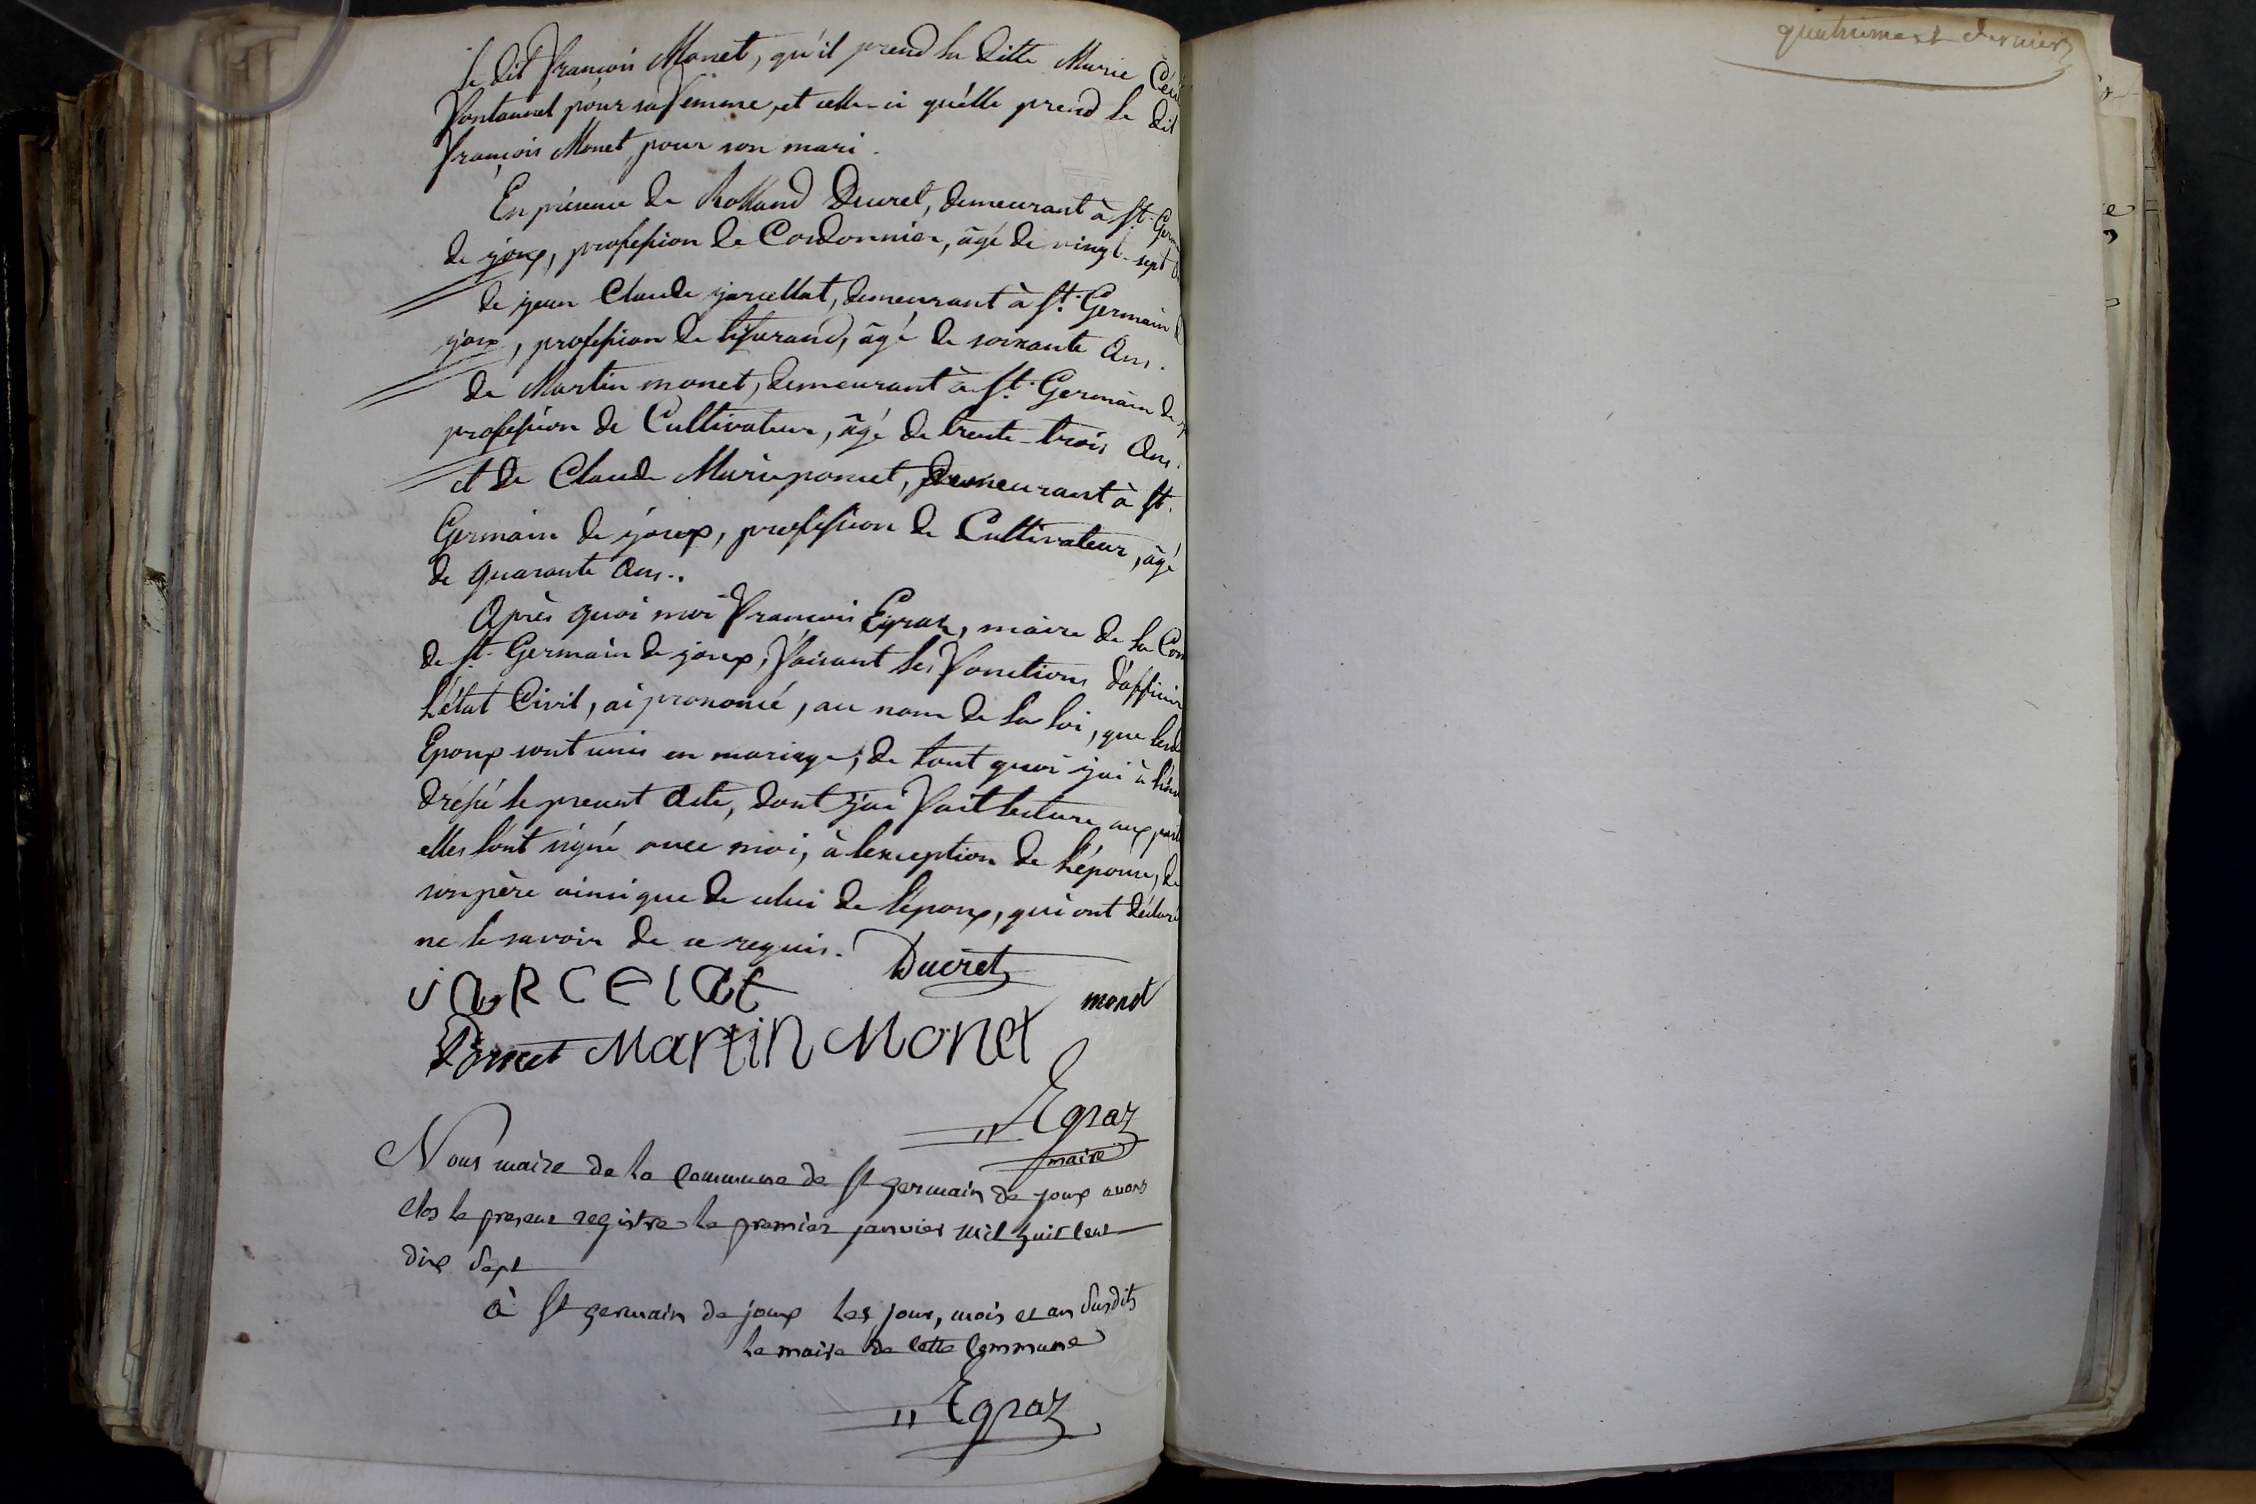 le dit françois Monet, qu'il prend la ditte Marie
fontannel pour sa femme, et celle-ci qu'elle prend le dit
françois Monet, pour son mari.
En présence de Rolland Ducret, demeurant à St. Germ
de joux, profession de Cordonnier, âgé de vingt-sept
de jean Claude jarcellat, demeurant à St. Germain d
joux, profession de tisserand, âgé de soixante Ans.
de Martin monet, demeurant à St. Germain de
profession de Cultivateur, âgé de trente-trois Ans.
et de Claude Marie poncet, demeurant à St.
Germain de joux, profession de Cultivateur, âgé
de quarante Ans..
Après quoi moi françois Egraz, maire de la Com
de St. Germain de joux, faisant les fonctions d'officier
l'état Civil, ai prononcé, au nom de la loi, que les
Epoux sont unis en mariage; de tout quoi j'ai à l'in
dréssé le present Acte, dont j'ai fait lecture aux parti
elles l'ont signé avec moi, à lexception de l'épouse, de
son père ainsi que de celui de l'époux, qui ont déclaré
ne le savoir de ce requis. Ducret
jaRCelat monet
Poncet Martin Monet
Egraz
maire
Nous maire de la Commune de St germain de joux avons
Clos le present registre le premier janvier mil huit Cent
dix Sept
à St germain de joux les jour, mois et an Susdits
le maire de Cette Commune
Egraz
quatrieme et dernier